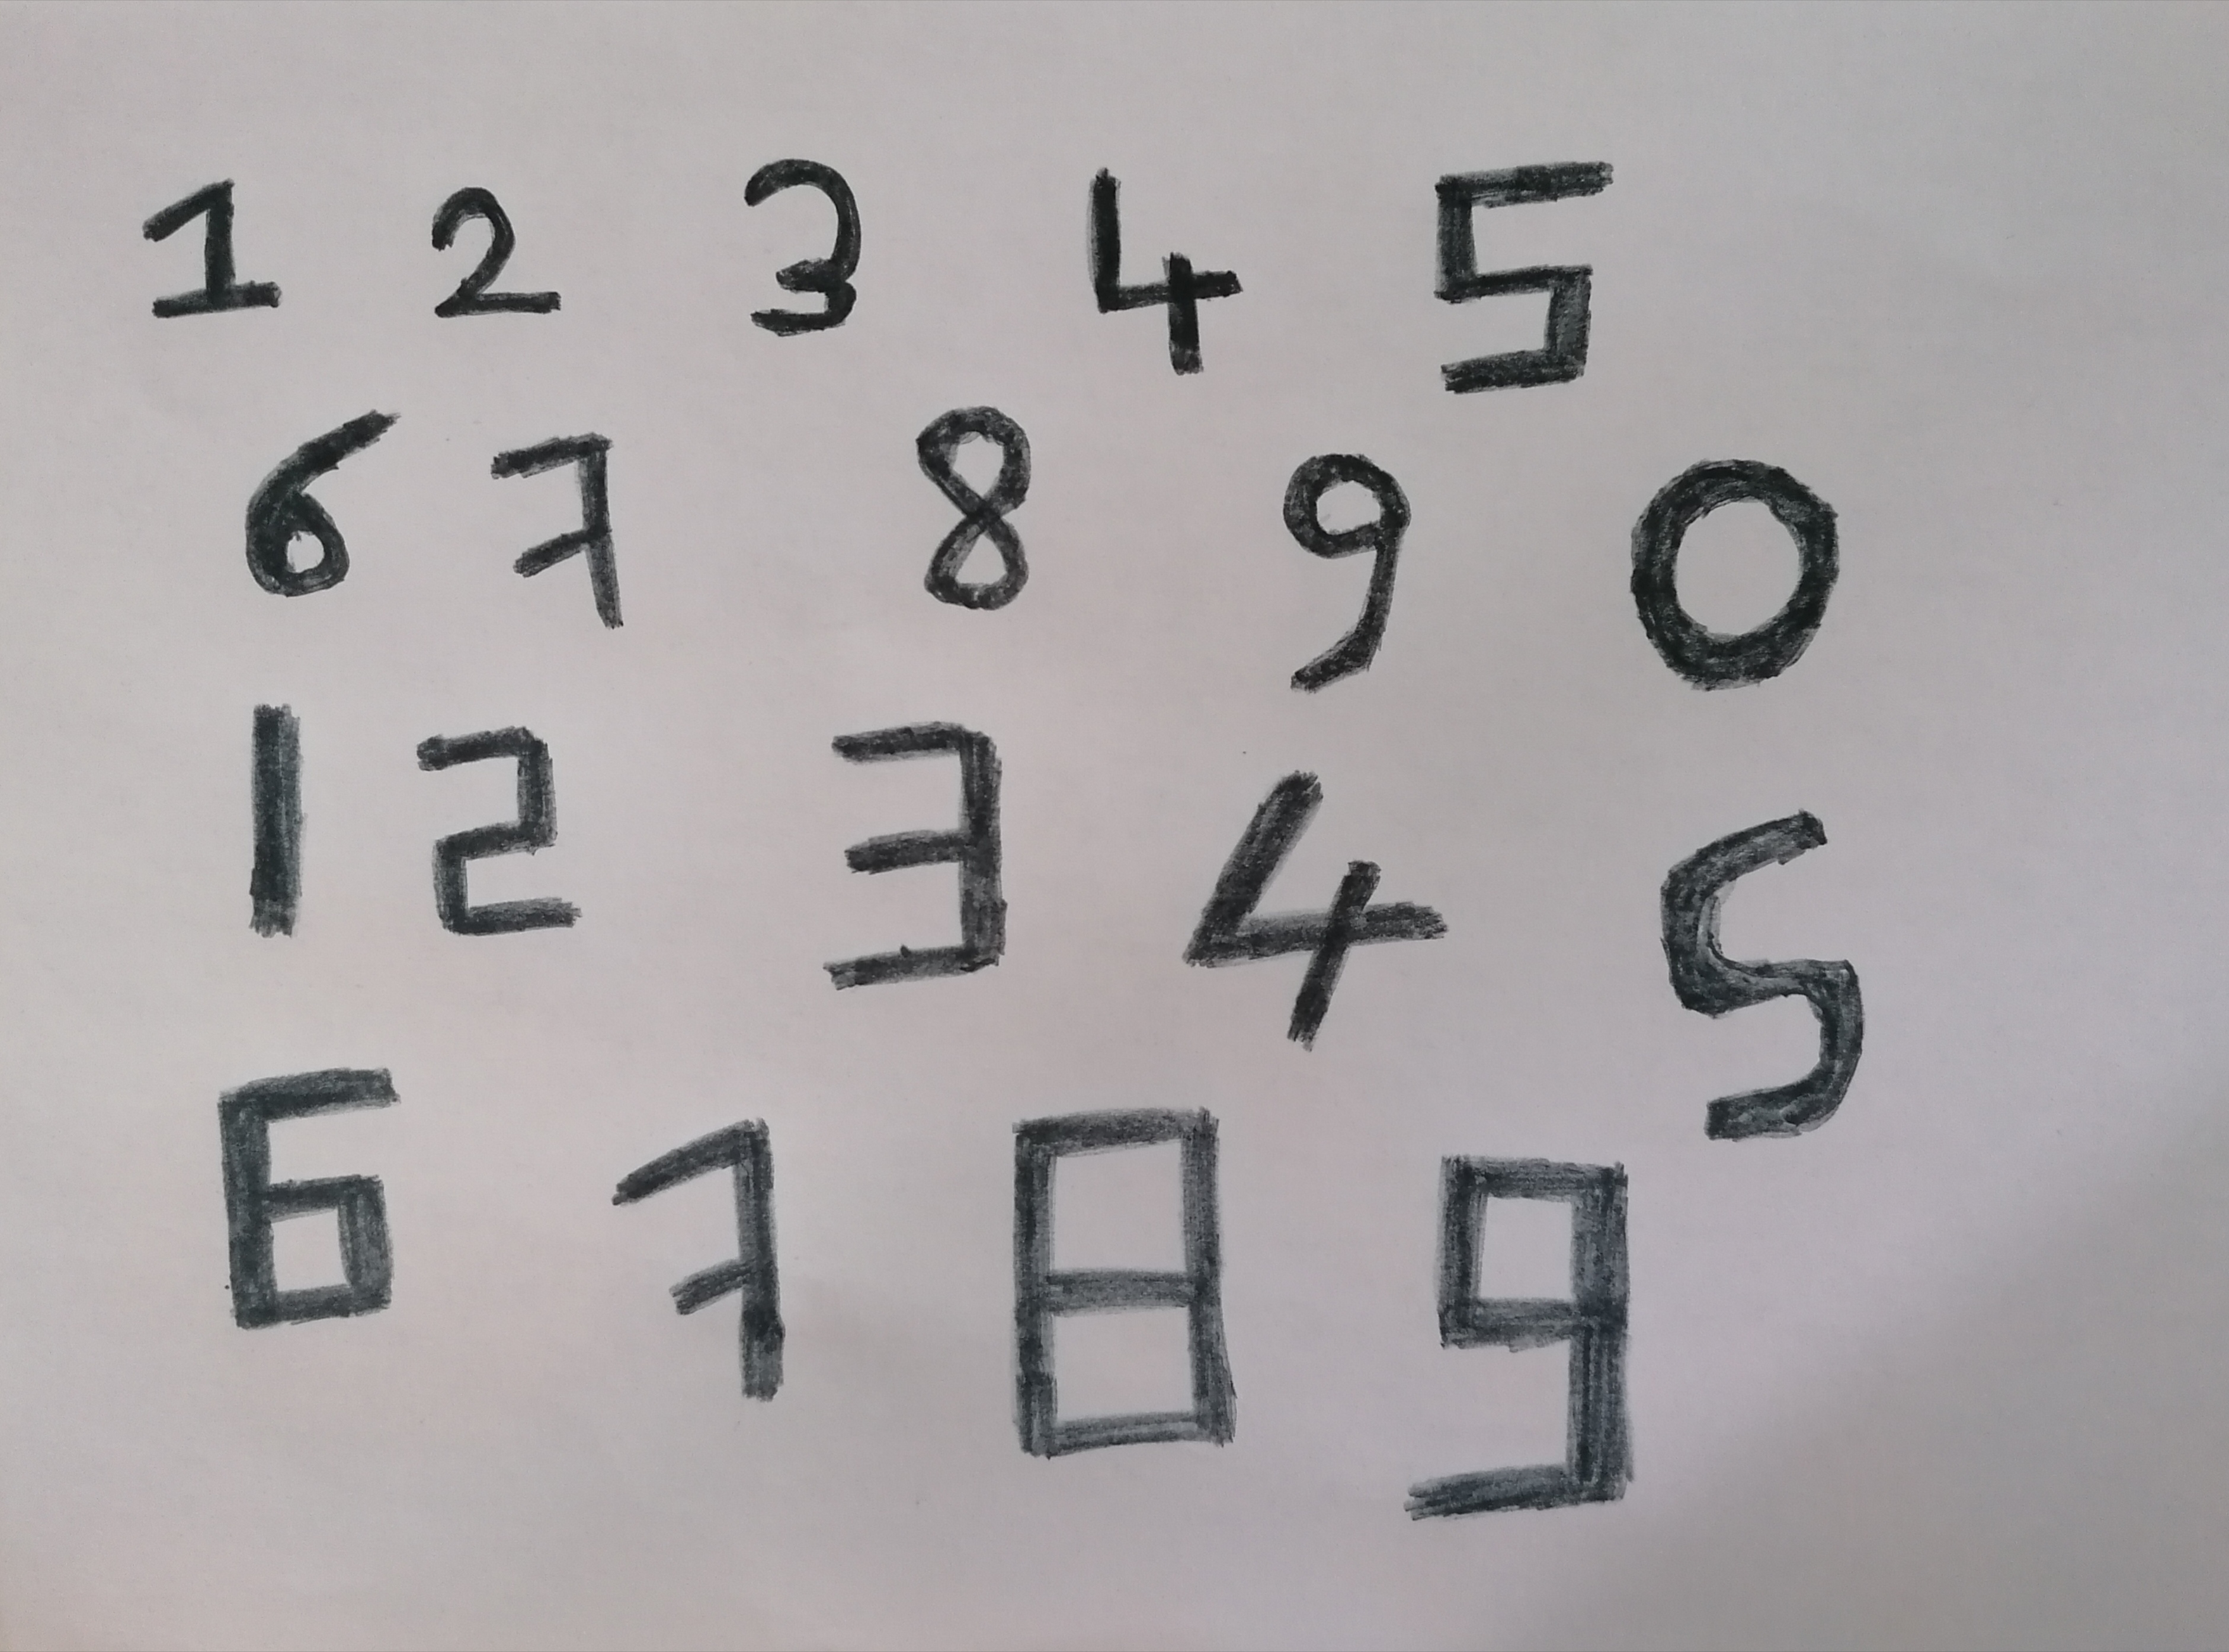 1 2 3 4 5
6 7 8 9 0
1 2 3 4 5
6 7 8 9